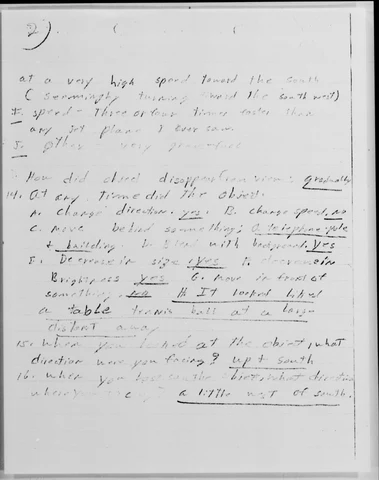 2)
at a very high speed toward the south
(seemingly turning toward the south west)
I. speed - three or four times faster than
any jet plane I ever saw.
J. other - very
How did object disappear from view: gradually
14. At any time did the object:
A. change direction. yes. B. change speed. no
C. move behind something: a telephone pole
+ building. D. Blend with background. yes
E. Decrease in size: yes F. decrease in
Brightness yes G. move in front of
something. no H. It looked like
a table tennis ball at a large
distant away
15. When you looked at the object, what
direction were you facing? up + south
16. when you last saw the object, what direction
were you a little west of south.